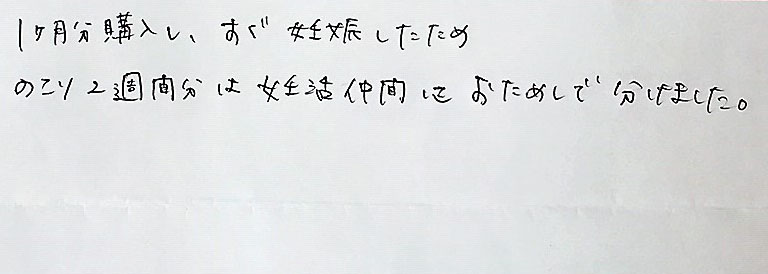 1ヶ月分購入し、すぐ妊娠したため
のこり2週間分は妊活仲間に おためしで分けました。